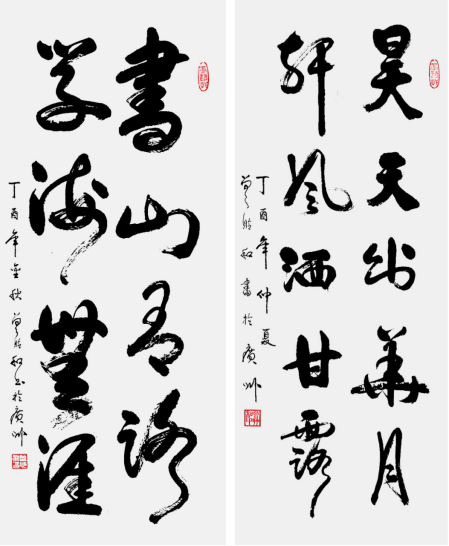 昊天出華月
軒風洒甘露
丁酉年仲夏
書於廣州
書山有路
学海無涯
丁酉年金秋書於廣州